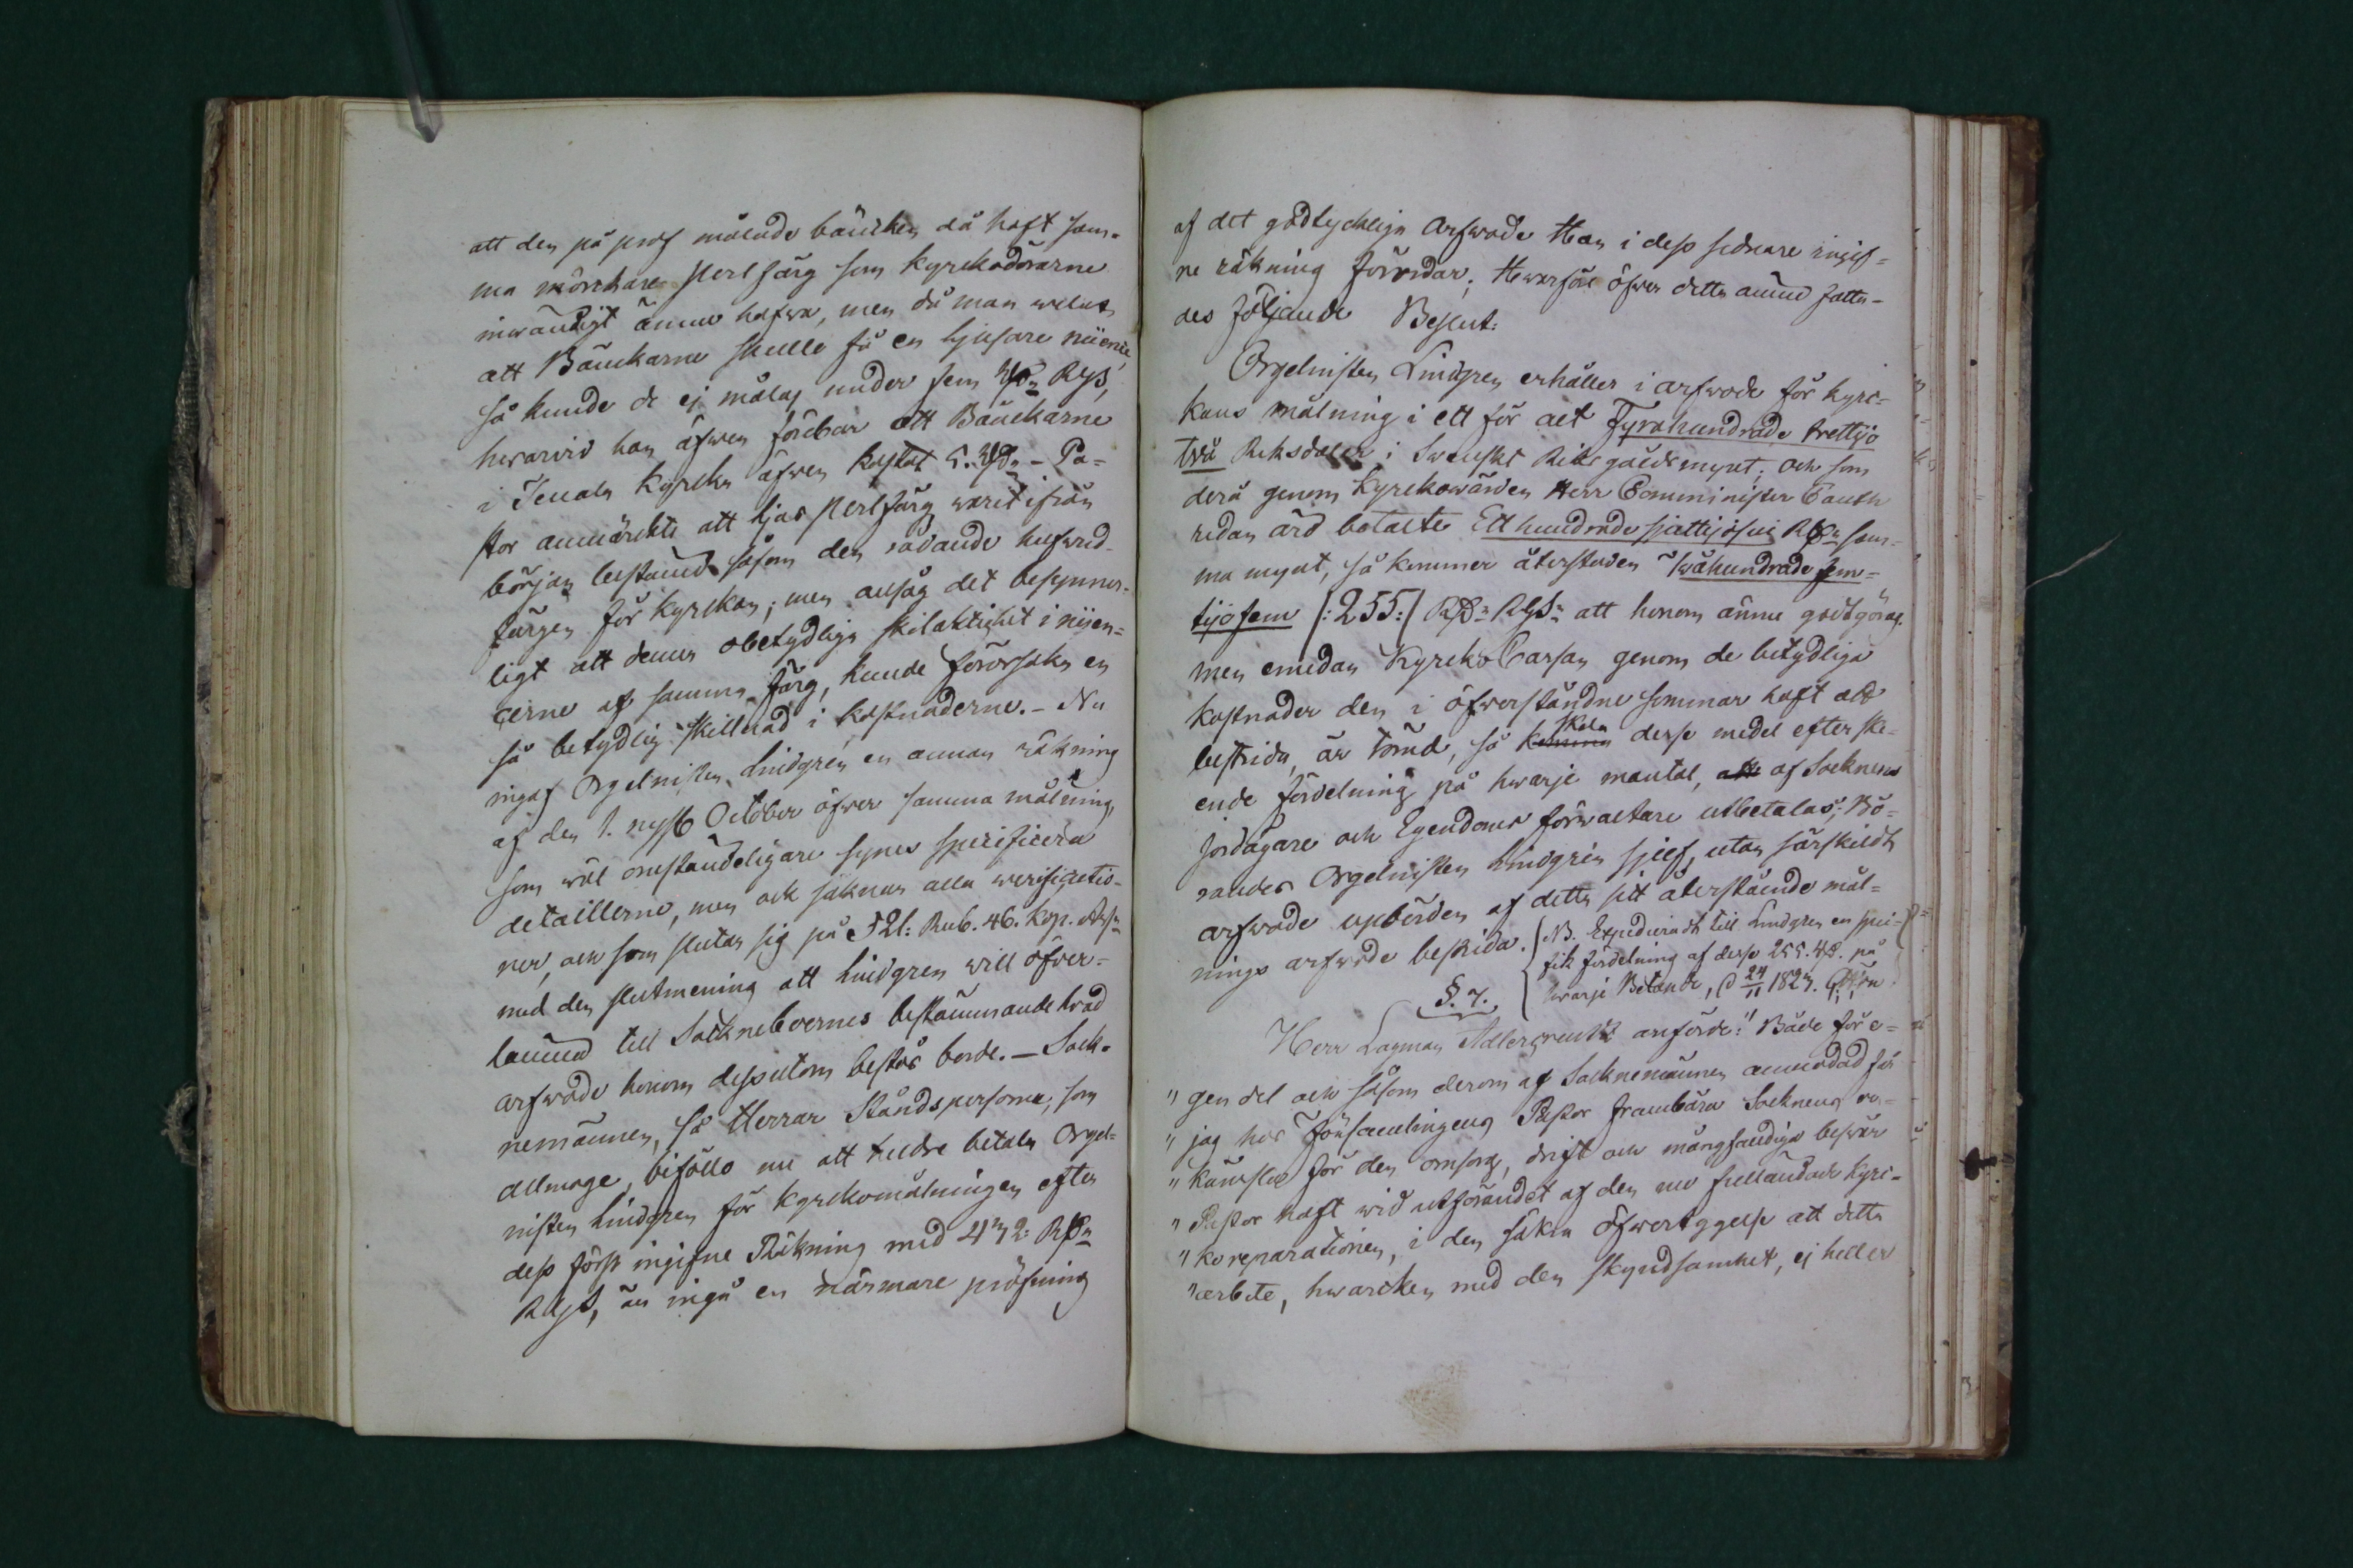 att den på prof målade bäncken då haft sam-
ma mörckare perlfärg som kyrckodörarne
invändigt ännu hafva, men då man velat
att Bänckarne skulle få en ljusare nuence,
så kunde de ej målas under fem Rdr RgS,
hvarvid han äfven förebar att Bänckarne
i Tenala Kyrcka äfven kostat 5. Rdr - Pa-
stor anmärckte att ljus perlfärg varit ifrån
början bestämd såsom den rådande hufvud-
färgen för kyrckan; men ansåg det besynner-
ligt att denna obetydliga skilaktighet i nüen-
cerne af samma färg, kunde förorsaka en
så betydlig skillnad i kostnaderne. - Nu
ingaf Orgelnisten Lindgren en annan räkning
af den 1. nyss October öfver samma målning,
som väl omständeligare synes specificera
detaillerne, men ock saknar alla verificatio-
ner, och som slutar sig på 521: Rub. 46. kop. Assr
med den slutmening att Lindgren vill öfver-
lämna till Sockneboernes bestämmande hvad
arfvode honom dessutom bestås borde. - Sock-
nemännen, så Herrar Ståndspersoner, som
allmoge, biföllo nu att heldre betala Orgel-
nisten Lindgren för Kyrckomålningen efter
dess först ingifne Räkning med 432: Rdr
RgS, än ingå en närmare pröfning
af det godtyckliga Arfvode Han i dess sednare ingif-
ne räkning fordrar; Hvarföre öfver detta ämne fatta-
des följande Beslut:
Orgelnisten Lindgren erhåller i arfvode för kyrc-
kans målning i ett för alt Fyrahundrade trettijo
två Riksdaler i Svenskt Riksgäldsmynt; och som
derå genom Kyrckovärden Herr Comminister Cauth
redan ärd betalte Ett hundrade sjuttijosju Rdr sam-
ma mynt, så kommer återstoden Tvåhundrade fem-
tijo fem /: 255:/ Rdr RgSr att honom ännu godtgöras.
men emedan Kyrcko Cassan genom de betydliga
kostnader den i öfverståndne sommar haft att
bestrida, är tömd, så skola desse medel efter ske-
ende fördelning på hvarje mantal, af Socknens
Jordägare och Egendoms förvaltare utbetalas; Bö-
randes Orgelnisten Lindgren sjelf, utan särskildt
arfvode upbörden af detta sitt återstående mål-
nings arfvode bestrida. NB. Expedieradt till Lindgren en speci-
fik fördelning af desse 255. Rdr. på
hvarje Betande, d 24/11 1827.
§. 7.
Herr Lagman Adlercreutz anförde: "Både för e-
"gen del och såsom derom af Socknemännen anmodad får
"jag hos Församlingens Pastor frambära Socknens er-
"känsla för den omsorg, drift och mångfaldiga besvär
"Pastor haft vid utförandet af den nu fulländade kyrc-
"ko reparationen, i den säkra öfvertyggelse att detta
"arbete, hvarcken med den skyndsamhet, ej heller